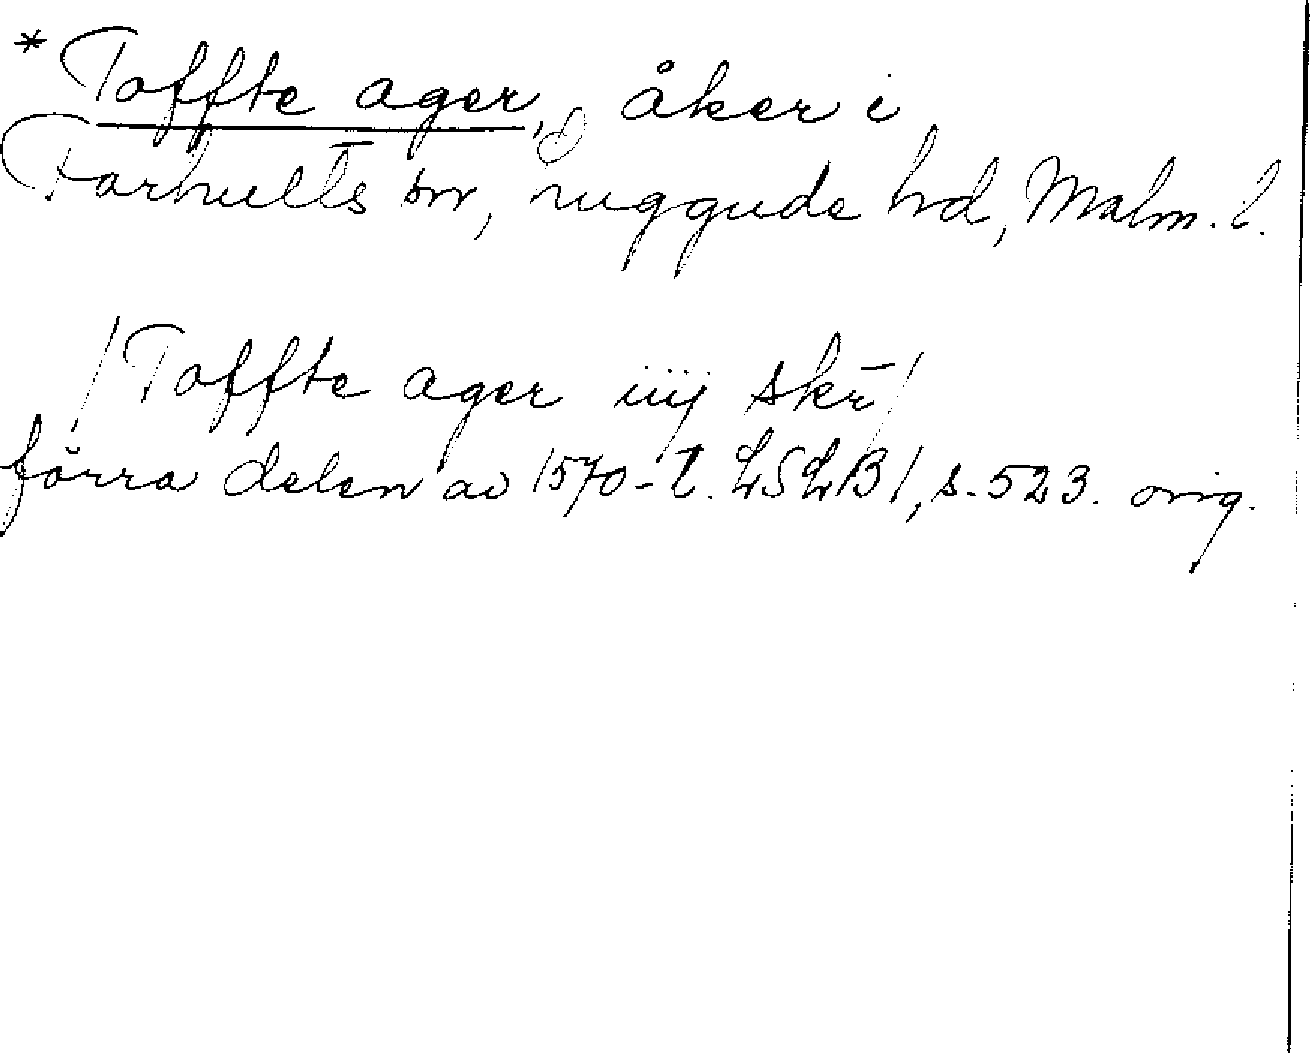 * Toffte ager, åker i
Farhults sn, Luggude hd, Malm. l.
/Toffte ager iiij skr̄/
förra delen av 1570-t. LSLB1, s. 523. orig.